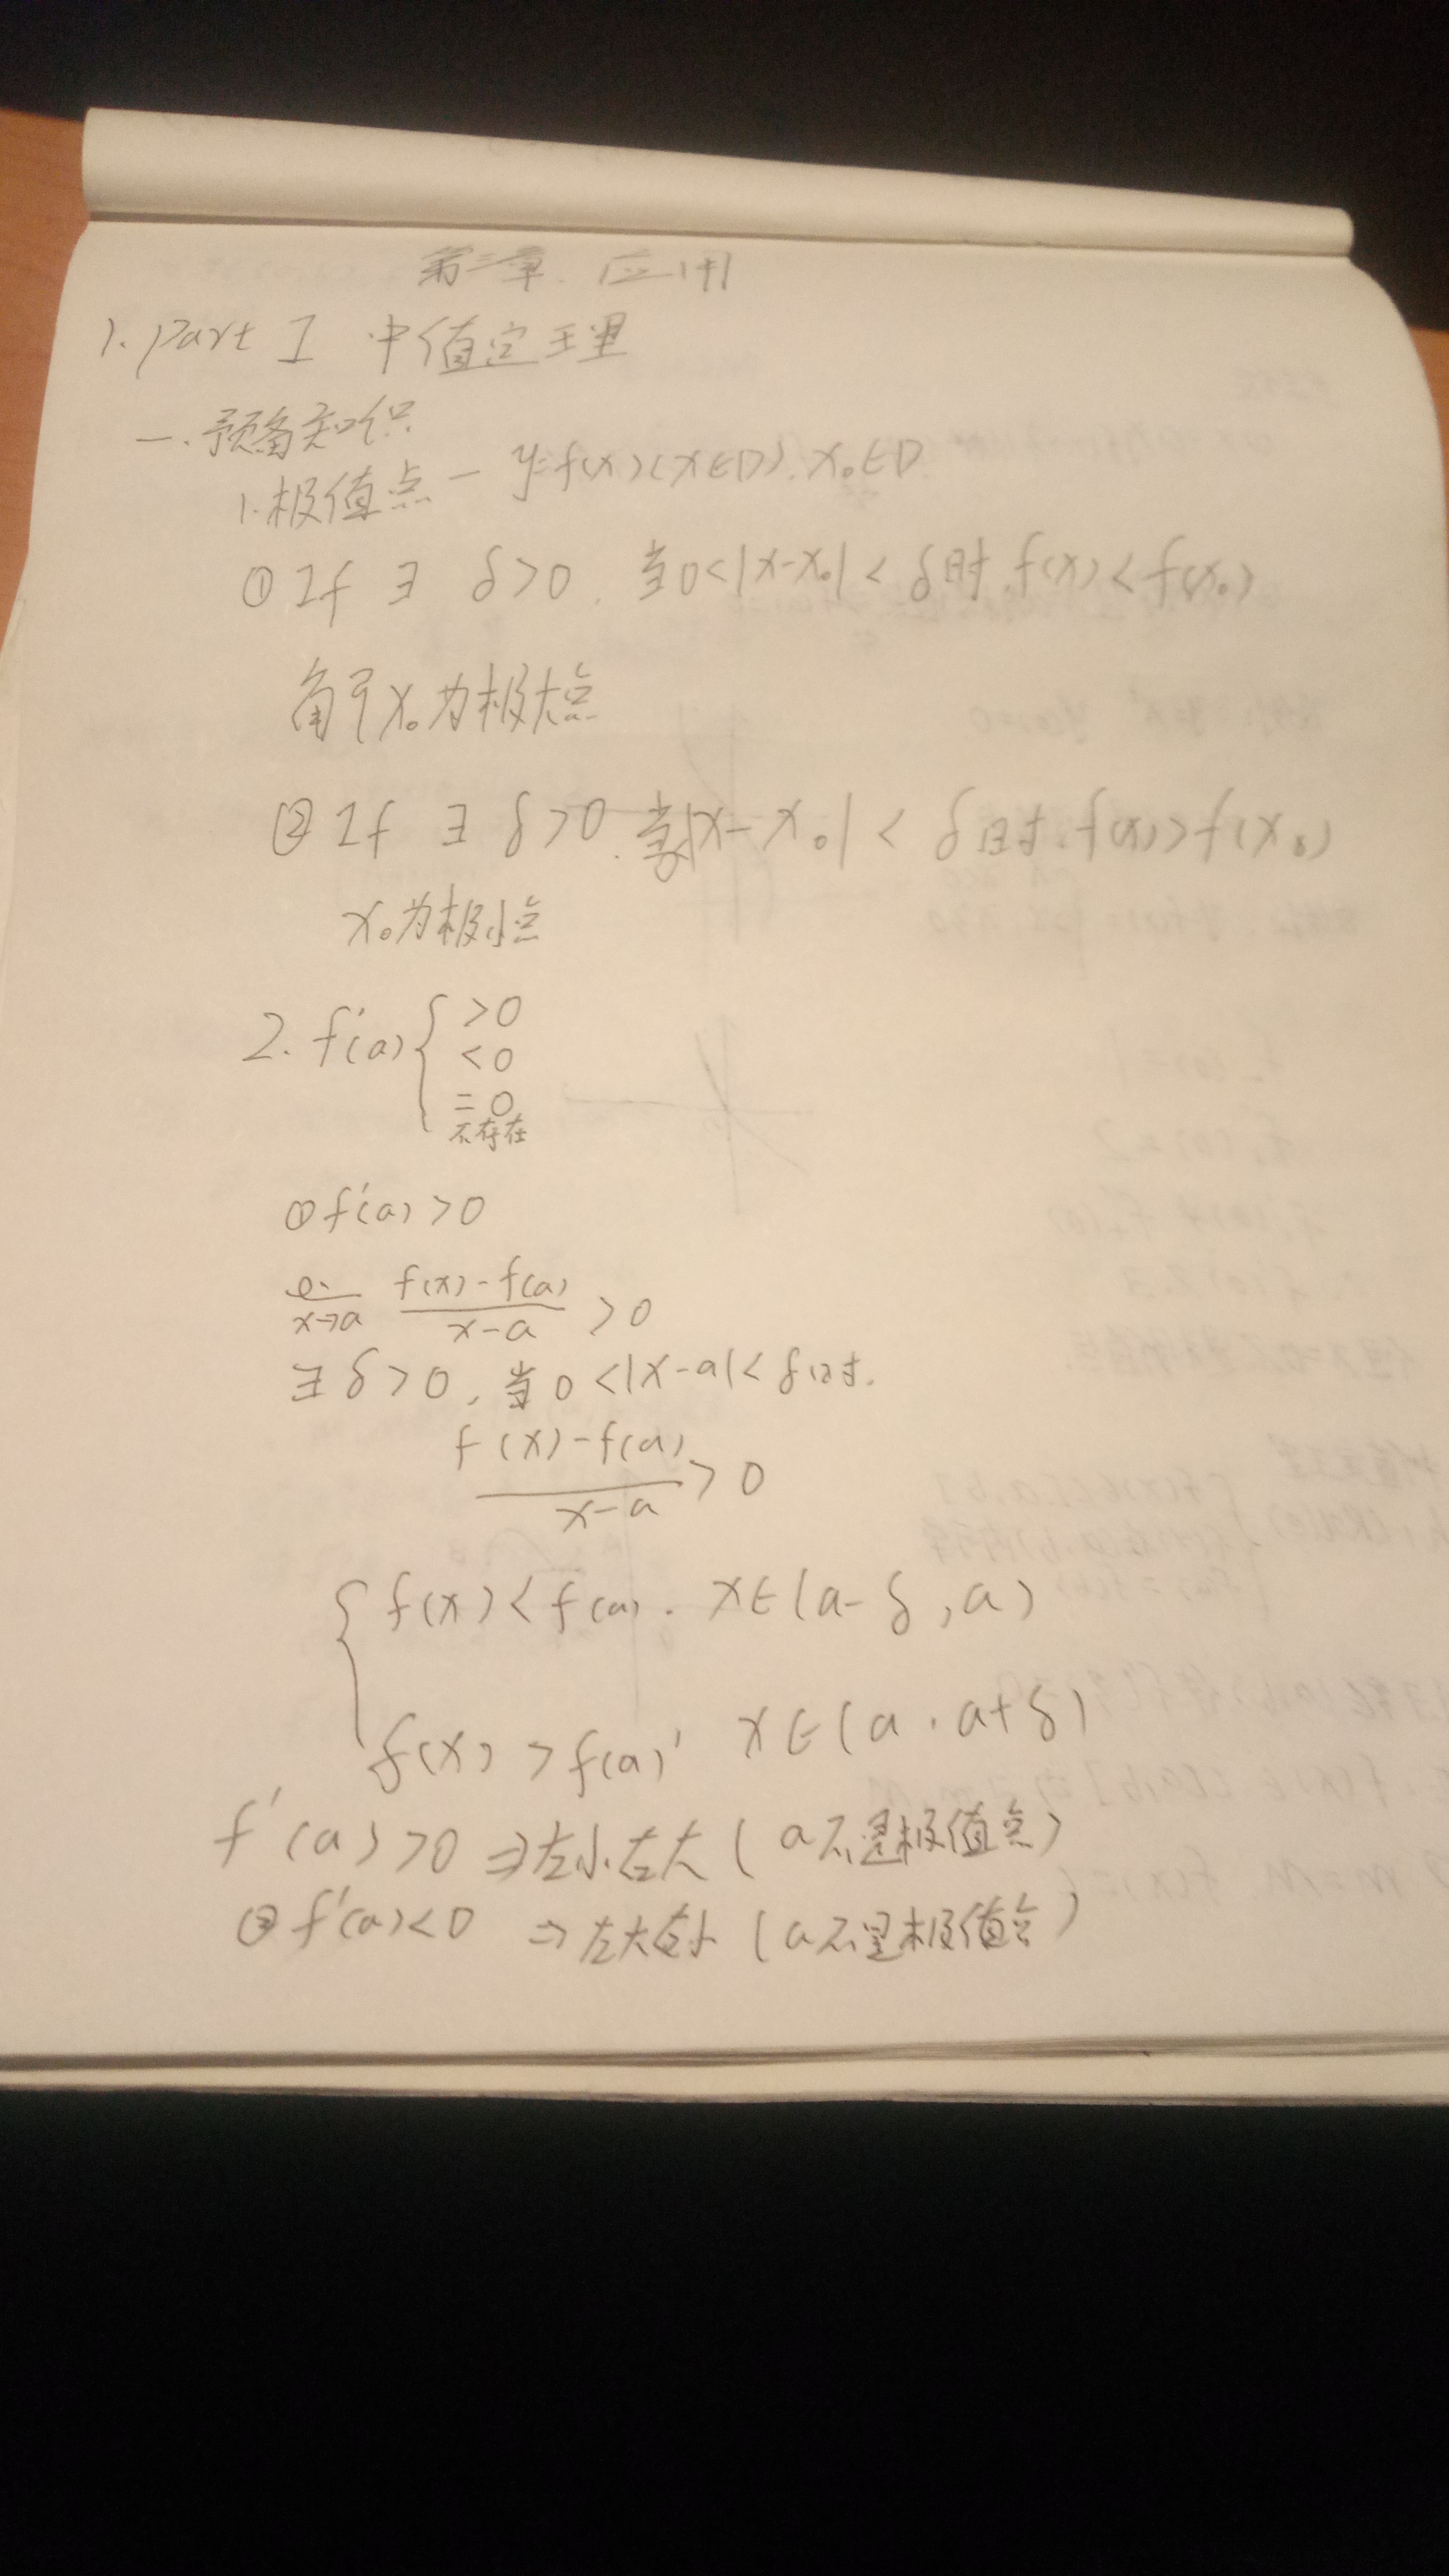 第三章. 应用
1. Part I 中值定理
一. 预备知识
1. 极值点 — y=f(x) (x∈D). x₀∈D
① If ∃ δ>0. 当0<|x-x₀|<δ时. f(x)<f(x₀)
x₀为极大点
② If ∃ δ>0. 当|x-x₀|<δ时. f(x)>f(x₀)
x₀为极小点
2. f'(a) { >0
<0
=0
不存在
① f'(a)>0
x→a (f(x)-f(a))/(x-a) >0
∃ δ>0, 当0<|x-a|<δ时.
(f(x)-f(a))/(x-a) >0
{ f(x)<f(a). x∈(a-δ, a)
f(x)>f(a)' x∈(a, a+δ)
f'(a)>0 ⇒左小右大 (a不是极值点)
② f'(a)<0 ⇒左大右小 (a不是极值点)